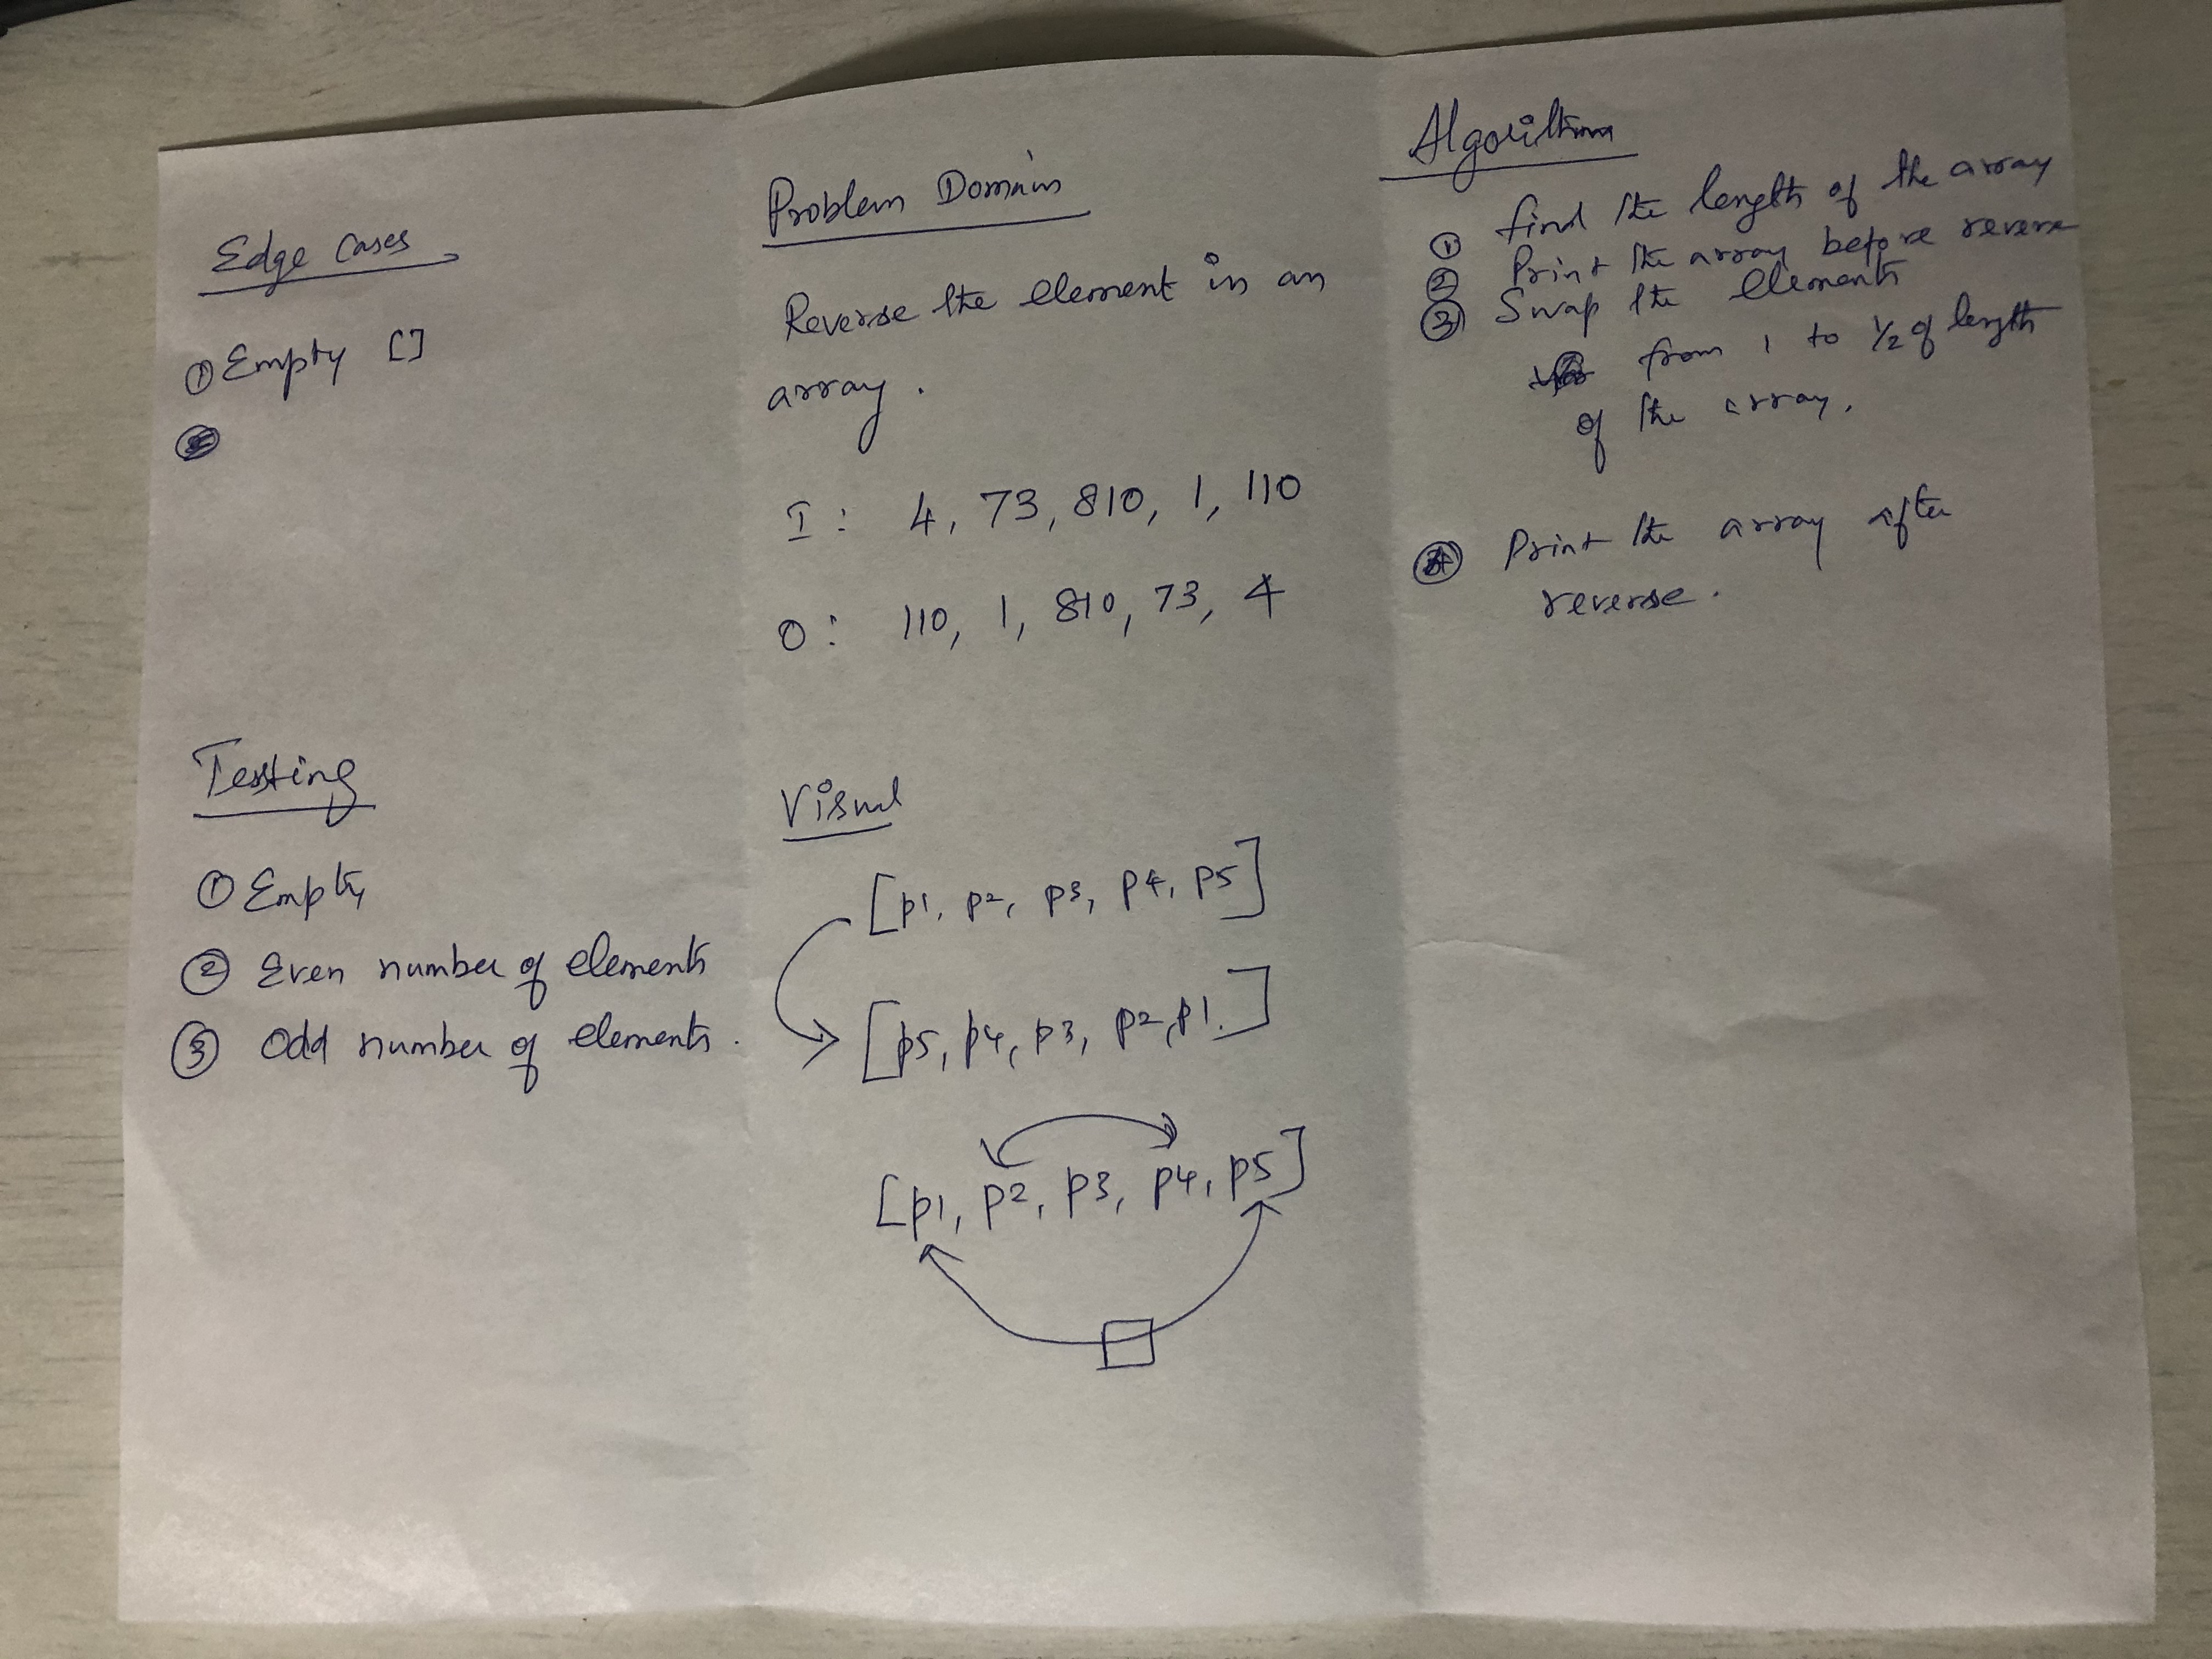 Edge Cases
① Empty []
Testing
① Empty
② Even number of elements
③ Odd number of elements.
Problem Domain
Reverse the element in an
array.
I: 4, 73, 810, 1, 110
O: 110, 1, 810, 73, 4
Visual
[p1, p2, p3, p4, p5]
[p5, p4, p3, p2, p1.]
[p1, p2, p3, p4, p5]
Algorithm
① find the length of the array
② Print the array before reverse
③ Swap the elements
from 1 to 1/2 of length
of the array.
④ Print the array after
reverse.